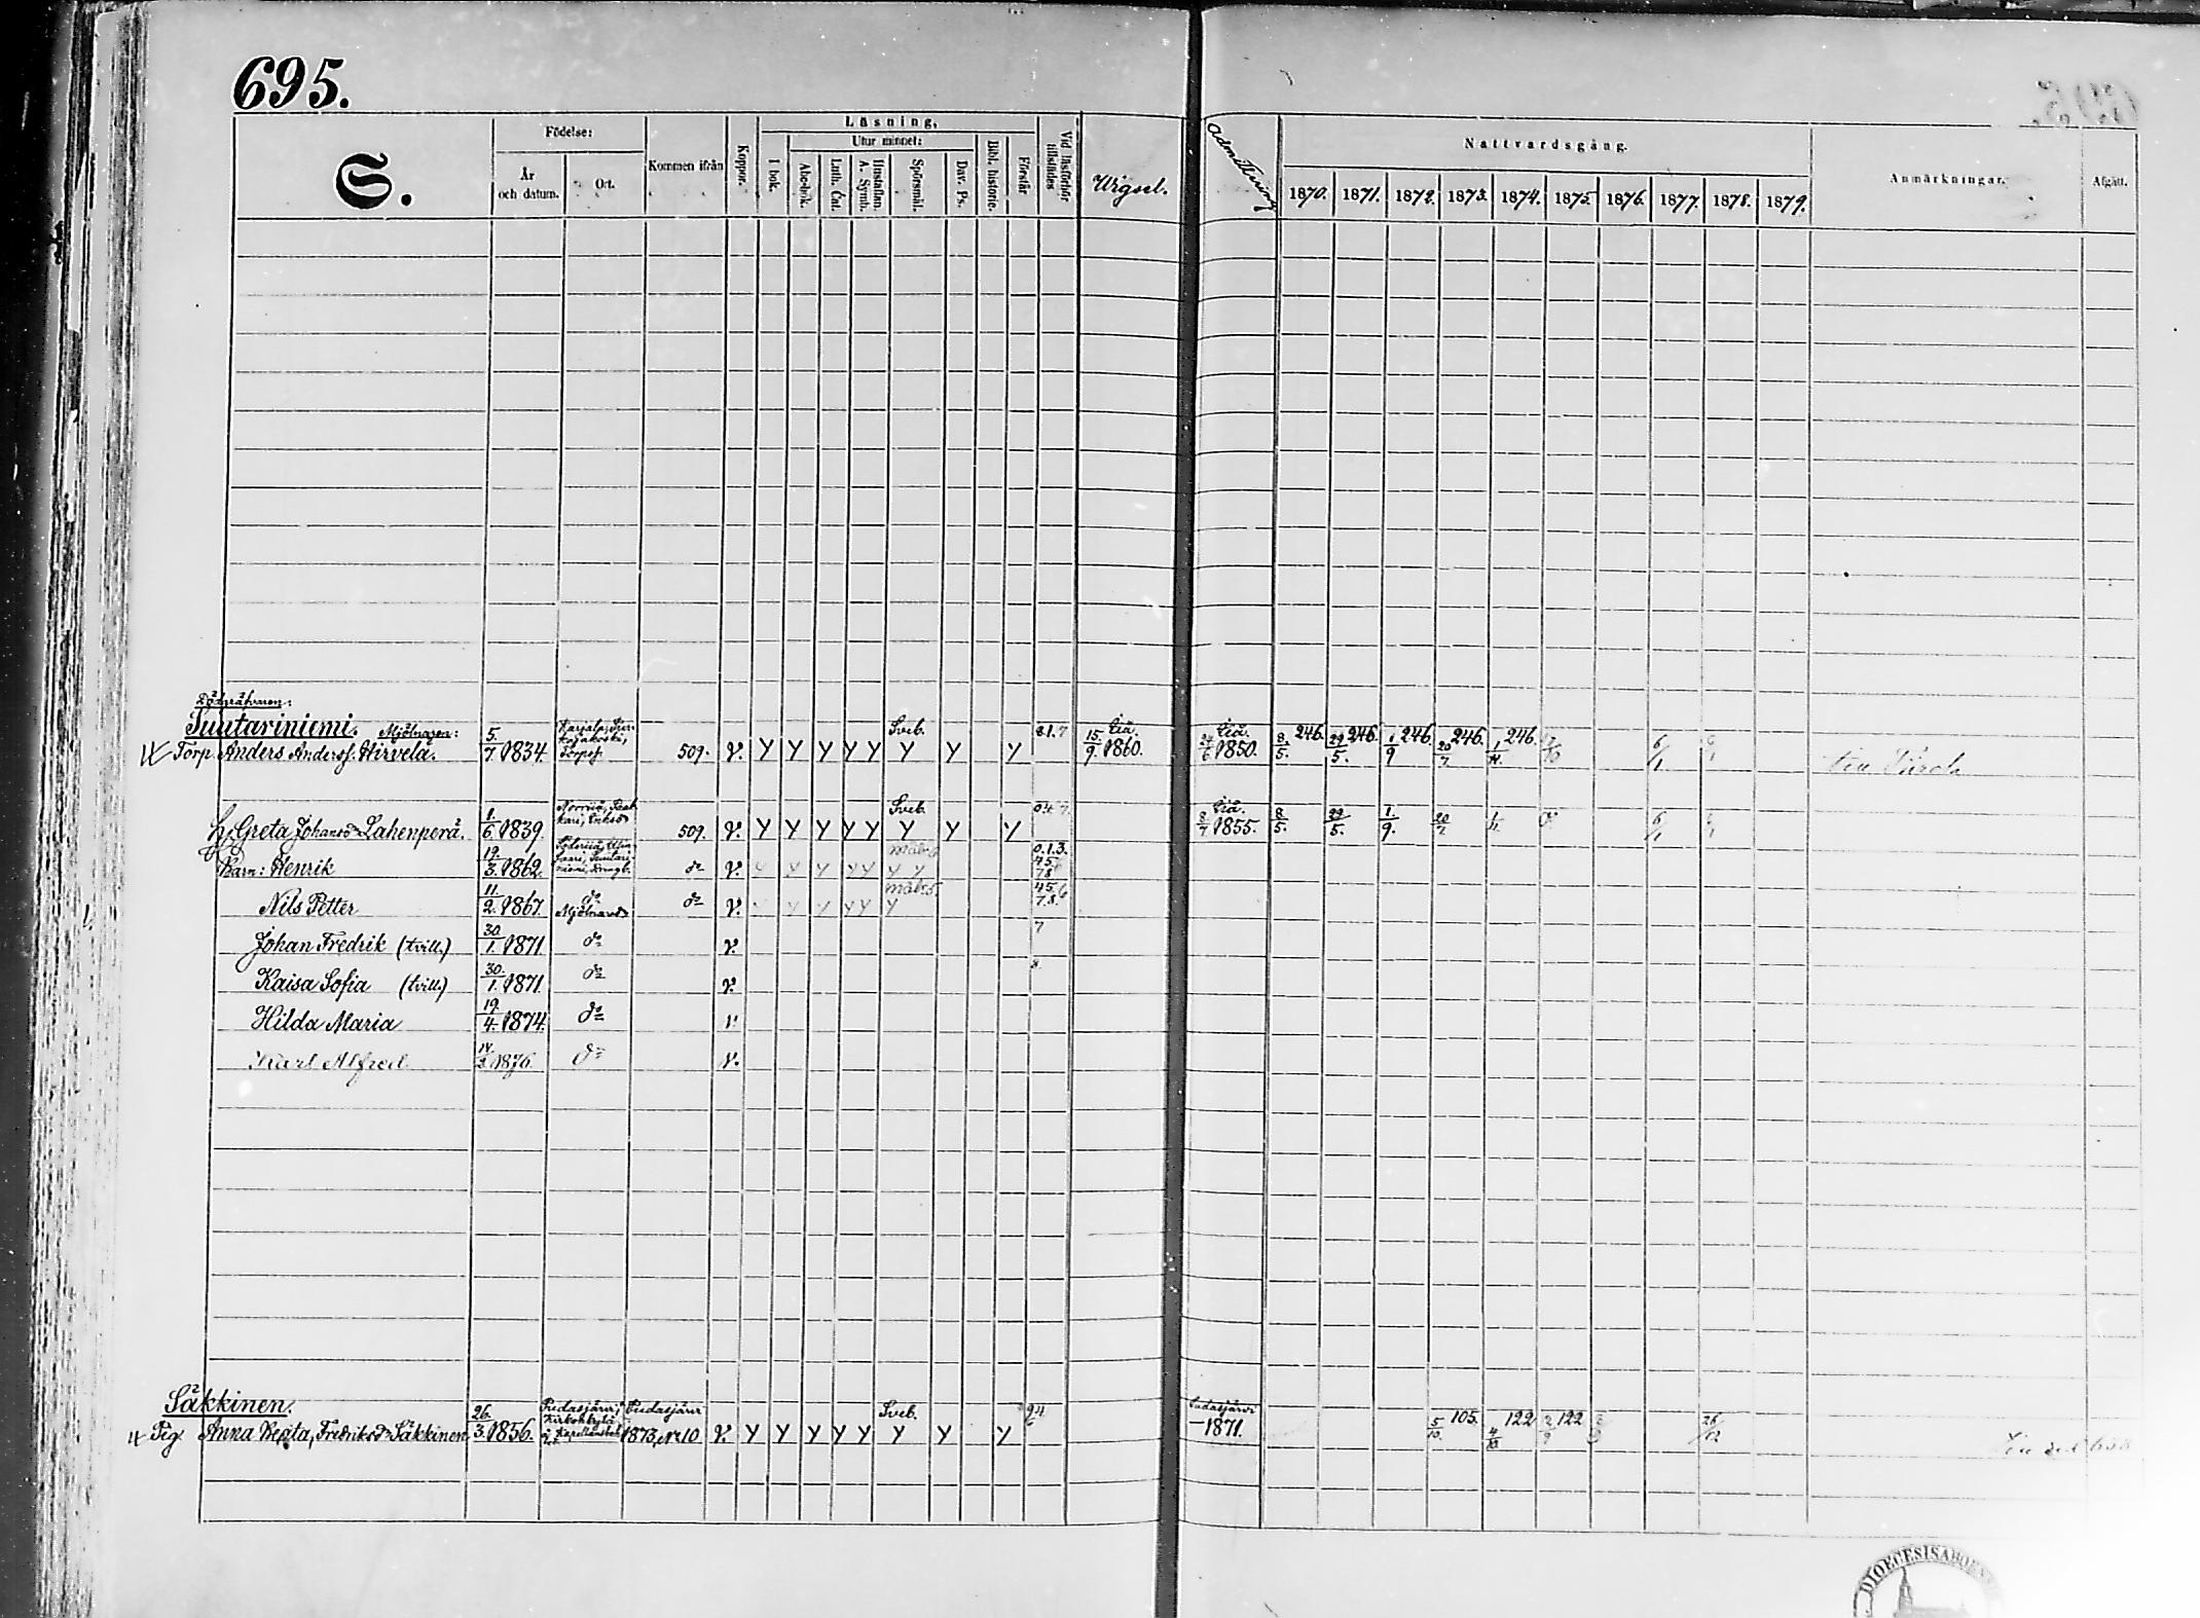 695.
S.
Födelse:
År och datum.
Ort.
Kommen ifrån
Koppor.
Läsning,
I bok.
Utur minnet:
Abc-bok.
Luth. Cat.
Hustaflan. A. Symb.
Spörsmål.
Dav. Ps.
Bibl. historie.
Förstår
Vid läsförhör tillstädes
Vigsel.
Admittering
Nattvardsgång.
1870. 1871. 1872. 1873. 1874. 1875. 1876. 1877. 1878. 1879.
Anmärkningar.
Afgått.
Suutariniemi. Mjölnaren:
Torp. Anders Andersf. Hirvelä. 5/7 1834. 509. v. Y Y Y Y Y Sveb. Y Y Y 15/9 1860. 1850. 8/5. 246. 29/5. 246. 1/9 246. 20/7. 246. 1/11. 246. 6/1
h. Greta Johansdr Lahenperä. 1/6 1839. 509. v. Y Y Y Y Y Sveb. Y Y Y 8/7 1855. 8/5. 29/5. 1/9. 20/7. 6/1
Barn: Henrik 19/3. 1862. do v. Y Y Y Y Y Y Y 0.1.3.
Nils Petter 11/2. 1867. do Mjölnares do v. Y Y Y Y Y
Johan Fredrik (tvill.) 30/1. 1871. do v. 7
Kaisa Sofia (tvill.) 30/1. 1871. do v.
Hilda Maria 19/4. 1874. do v.
Karl Alfred 1876. do v.
Säkkinen.
Pig. Anna Beata, Fredriksdr Säkkinen 26/3. 1856. Pudasjärvi, Pudasjärvi 1873, No 10 v. Y Y Y Y Y Sveb. Y Y Y Pudasjärvi 1871. 5/10. 105. 4/10 122 122 26/12
DIOECESIS ABOENSIS